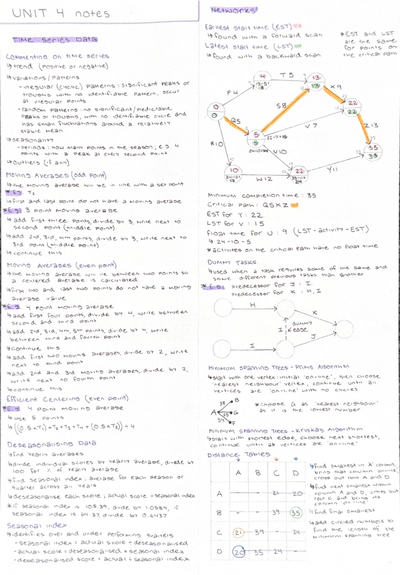 UNIT 4 notes
TIME SERIES DATA
Commenting on time series
*trend (positive or negative)
*variations/patterns
-irregular (cyclic) patterns: significant peaks or troughs with no identifiable pattern, occur at irregular points
-random patterns: no significant/predictable peaks or troughs, with no identifiable cycle and has small fluctuations around a relatively stable mean
*seasonality
-periods: how many points in the season, e.g. 4 points with a peak at every second point
*outliers (if any)
Moving Averages (odd point)
*first and last point do not have a moving average
*E.g. 3 point moving average
*add first three points, divide by 3, write next to second point (middle point)
*add 2nd, 3rd, 4th points, divide by 3, write next to 3rd point (middle point)
*continue this
Moving Averages (even point)
*the moving average will be between two points so a centered average is calculated
*first two and last two points do not have a moving average value
*E.g. 4 point moving average
*add first four points, divide by 4, write between second and third point
*add 2nd, 3rd, 4th, 5th points, divide by 4, write between third and fourth point
*continue this
*add first two moving averages, divide by 2, write next to third point
*add 2nd and 3rd moving averages, divide by 2, write next to fourth point
*continue this
Efficient Centering (even point)
*E.g. 4 point moving average
*use 5 points
Deseasonalising Data
*find yearly averages
*divide individual scores by yearly average, divide by 100 for % of yearly average
*find seasonal index: average for each season or quarter across all years
*deseasonalise each score: actual score ÷ seasonal index
Seasonal Index
*identifies over and under performing quarters
-seasonal index = actual score ÷ deseasonalised
-actual score = deseasonalised × seasonal index
-deseasonalised = actual score ÷ seasonal index
Networks
Earliest start time (EST)
*found with a forward scan
Latest start time (LST)
*found with a backward scan
*EST and LST are the same for points on the critical path
T 9
X 9
S 8
V 7
Z 13
W 12
Y 11
Minimum completion time: 35
Critical path: QSXZ
EST for Y: 22
LST for V: 15
Float time for U: 9 (LST-activity-EST)
*24-10-5
*activities on the critical path have no float time
Dummy Tasks
*used when a task requires some of the same and some different previous tasks than another
*E.g. Predecessor for J: I
Predecessor for K: H, I
H
K
DUMMY EDGE
I
J
Minimum Spanning Trees - Prims Algorithm
*start with one vertex initial 'online', then choose 'nearest neighbour' vertex, continue until all vertices are 'online' with no circuits
*choose G as 'nearest neighbour' as it is the lowest number
Minimum Spanning Trees - Kruskals Algorithm
*start with shortest edge, choose next shortest, continue until all vertices are 'online'
Distance Tables
A B C D
A - - 21 20
B - - 39 35
C 21 39 - 24
D 20 35 24 -
*find final smallest
*add circled numbers to find the length of the minimum spanning tree